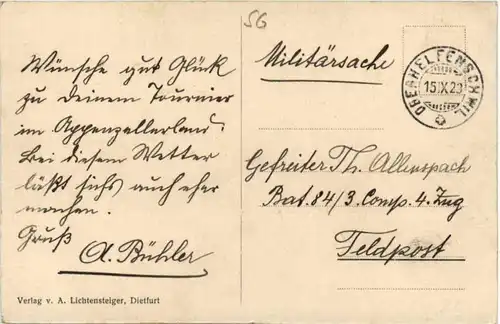 SG
Wünsche gut Glück
zu Deinem Tournier
im Appenzellerland.
Bei diesem Wetter
läßt sichs auch eher
machen.
Gruß
A. Bühler
Verlag v. A. Lichtensteiger, Dietfurt
Militärsache
OBERHELFENSCHWIL
15.IX.20
Gefreiter Th. Allenspach
Bat. 84/3. Comp. 4. Zug
Feldpost